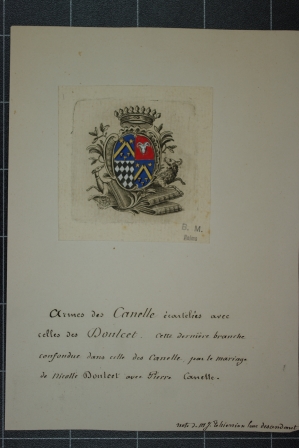 B. M.
Reims
Armes des Canelle écartelées avec
celles des Doulcet. Cette dernière branche
confondue dans celle des Canelle par le mariage
de Nicolle Doulcet avec Pierre Canelle.
note de Mr J. leur descendant